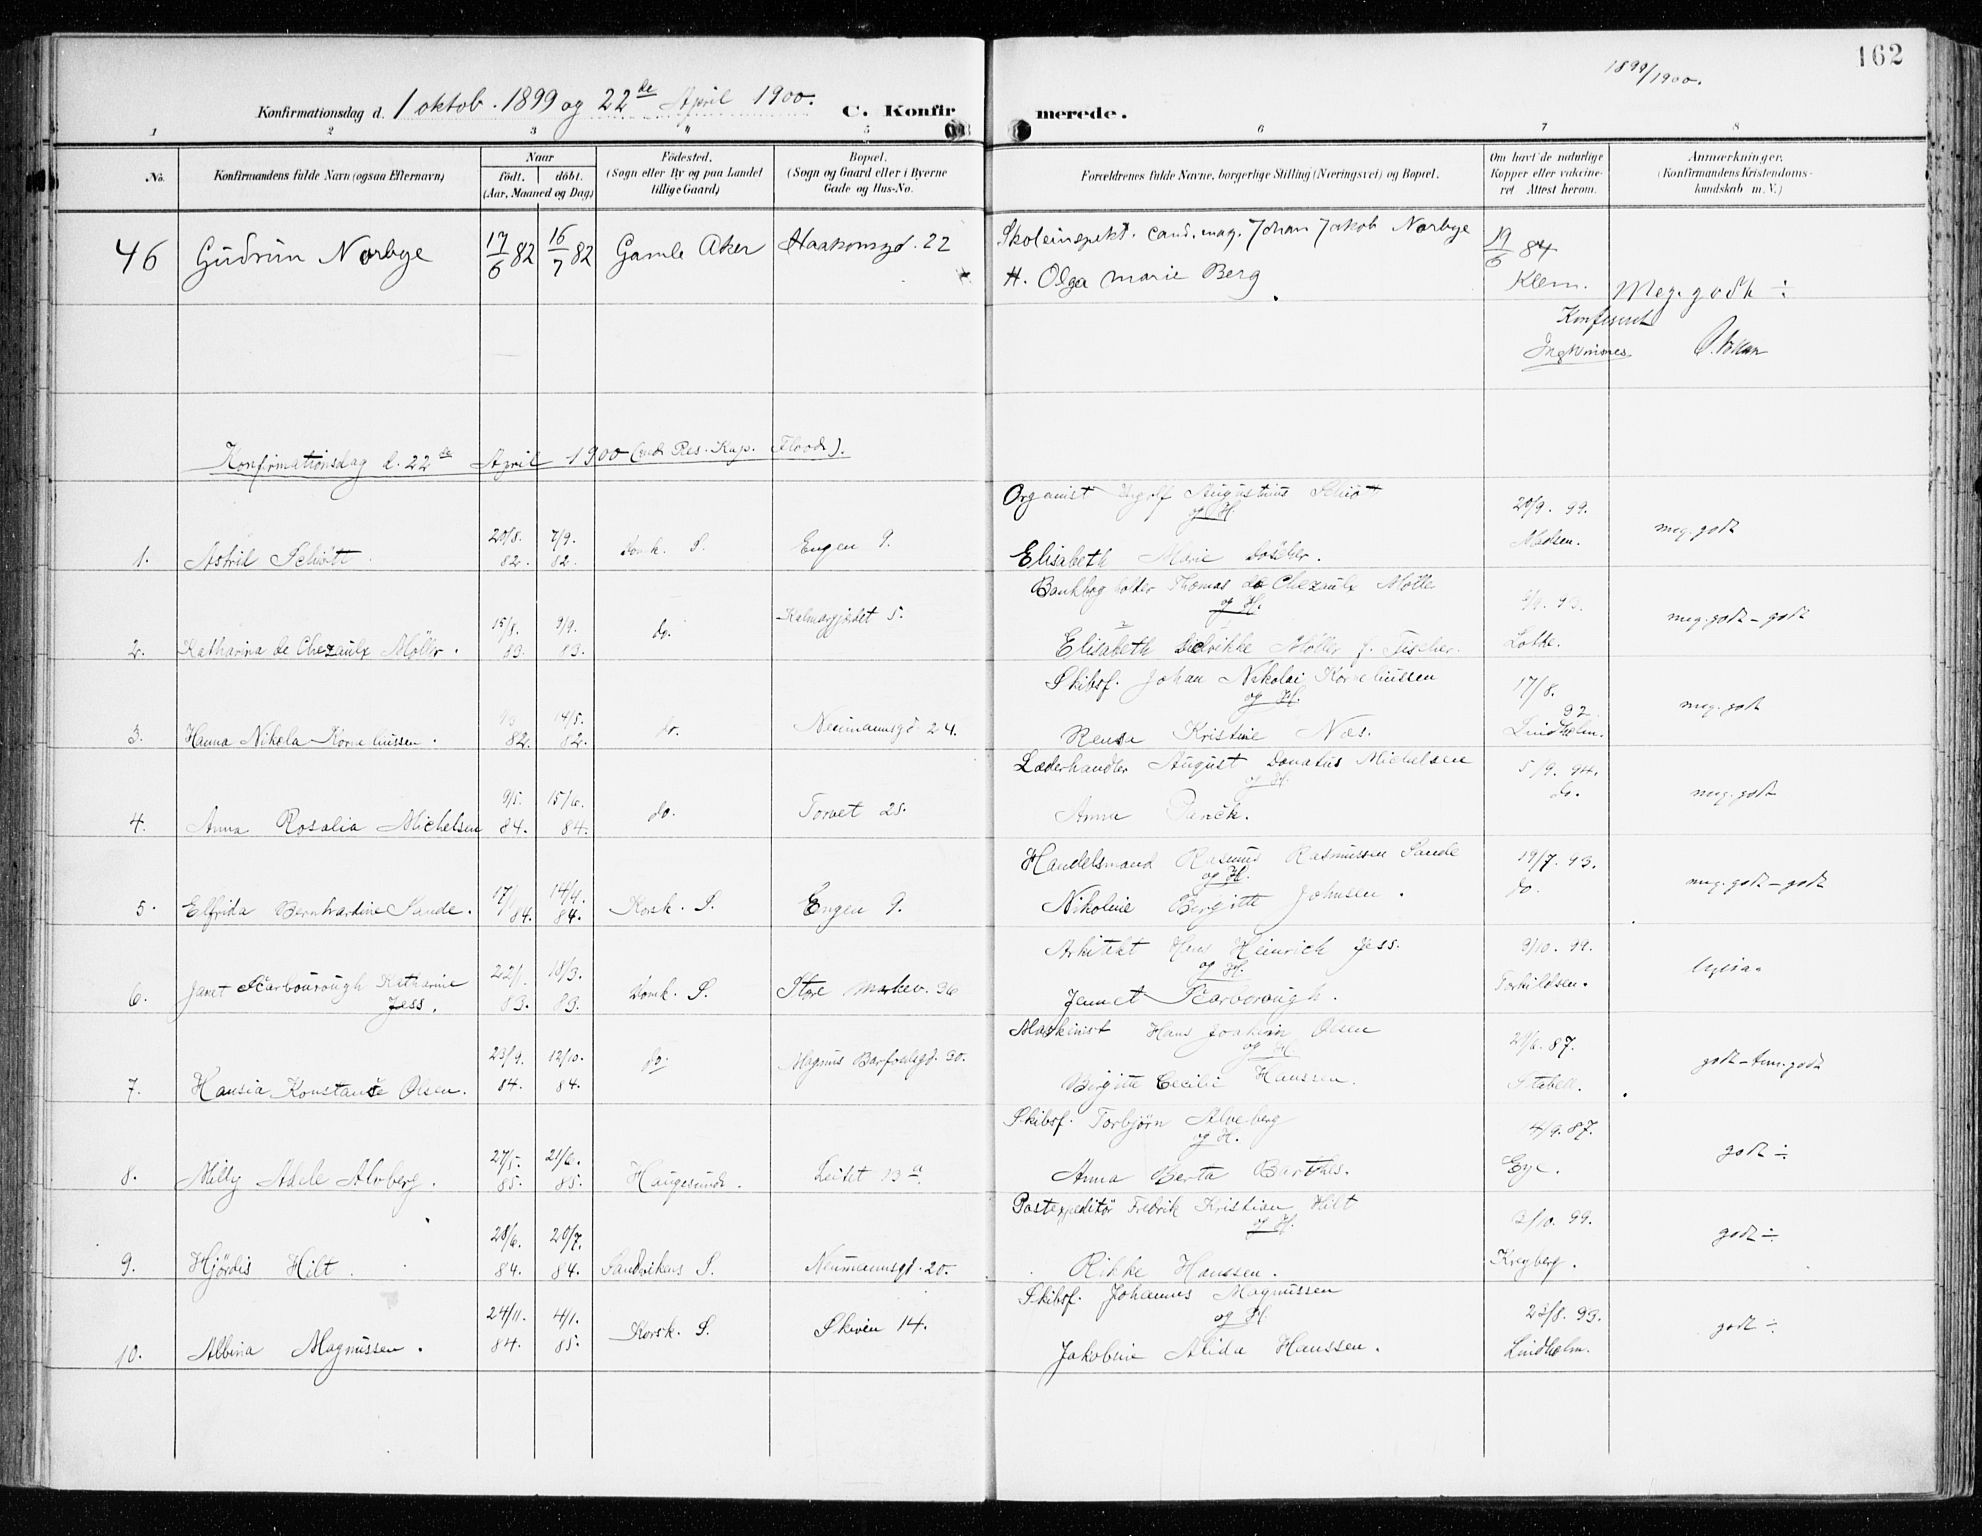 162
1899/1900.
Konfirmationsdag d. 1 oktob. 1899 og 22de April 1900.
C. Konfirmerede.
1 2 3 4 5 6 7 8
No. Konfirmandens fulde Navn (ogsaa Efternavn) Naar født. døbt. (Aar, Maaned og Dag) Fødested. (Sogn eller By og paa Landet tillige Gaard) Bopæl. (Sogn og Gaard eller i Byerne Gade og Hus-No. Forældrenes fulde Navne, borgerlige Stilling (Næringsvei) og Bopæl. Om havt de naturlige Kopper eller vakcineret Attest herom. Anmærkninger. (Konfirmandens Kristendomskundskab m. V.)
46 Gudrun Norbye 17/6 82 16/7 82 Gamle Aker Haakonsgd. 22 Skoleinspekt. cand. mag. Johan Jakob Norbye 19/6 84
H. Olga Marie Berg Klem. Meg. godt ÷
Konfereret
Konfirmationsdag d. 22de April 1900 (ved Res. Kap. Flood).
Organist Ingolf Augustinus Schiøtt 20/9. 99.
og H.
1. Astrid Schiøtt. 20/8. 82. 7/9. 82. Domk. S. Engen 9. Elisabeth Marie Madsen. meg. godt
Bankbogholder Thomas de Chezaulx Møller
og H.
2. Katharina de Chezaulx Møller. 15/8. 83. 9/9. 83. do. Kalmargjædet 5. Elisabeth Didrikke Møller f. Fischer. 9/9. 93. Lothe. meg. godt - godt
Skibsf. Johan Nikolai Korneliussen 17/8. 92.
og H.
3. Hanna Nikola Korneliussen. 82. 14/5. 82. do. Neumannsgd 24. Kristine Næs. Lindholm. meg. godt
Læderhandler August Donatus Michelsen 5/9. 94.
og H.
4. Anna Rosalia Michelsen 9/5. 84. 15/6. 84. do. Torvet 25. Anna do. meg. godt
Handelsmand Rasmus Rasmussen Sande 19/7. 93.
og H.
5. Elfrida Bernhardine Sande. 17/1 84. 14/4. 84. Korsk. S. Engen 9. Nikoline Bergitte Johnsen. do. meg. godt - godt
Arkitekt Hans Heinrich Jess. 9/10. 99.
og H.
6. Janet Scarbourough Katharine Jess. 22/1. 83. 18/3. 83. Domk. S. Store Markev. 36 Jennet Scarborough. Torkildsen.
Maskinist Hans Joakim Olsen
og H.
7. Hansia Konstanse Olsen. 23/9. 84. 12/10. 84. do. Magnus Barfodsgd. 30. Birgitte Cecilie Hanssen. 29/6. 87. Stabell. godt - tem. godt
Skibsf. Torbjørn Alveberg 4/9. 87.
og H.
8. Milly Adele Alveberg. 27/5. 85. 21/6. 85. Haugesund. Leitet 13 a Anna Berta Barthes. Eye. godt ÷
Postexpeditør Fredrik Kristian Hilt 2/10. 99.
og H.
9. Hjørdis Hilt. 28/6. 84. 20/7. 84. Sandvikens S. Neumannsgd. 20. Rikke Hanssen. Kreyberg. godt ÷
Skibsf. Johannes Magnussen 23/8. 93.
og H.
10. Albina Magnussen. 24/11. 84. 4/1. 85. Korsk. S. Skiven 14. Jakobine Alida Hanssen. Lindholm. godt ÷